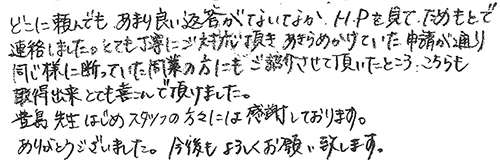 どこに頼んでも、あまり良い返答がでないなか、H.Pを見て、だめもとで
連絡しました。とても丁寧にご対応頂き、あきらめかけていた申請が通り
同じ様に断っていた同業の方にもご紹介させて頂いたところ、こちらも
取得出来とても喜んで頂けました。
豊島先生はじめスタッフの方々には感謝しております。
ありがとうございました。今後もよろしくお願い致します。